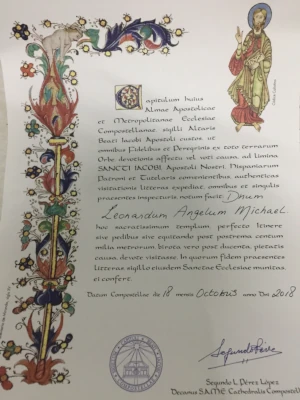 Capitulum huius
Almae Apostolicae
et Metropolitanae Ecclesiae
Compostellanae, sigilli Altaris
Beati Iacobi Apostoli custos, ut
omnibus Fidelibus et Peregrinis ex toto terrarum
Orbe, devotionis affectu vel voti causa, ad limina
SANCTI IACOBI, Apostoli Nostri, Hispaniarum
Patroni et Tutelaris convenientibus, authenticas
visitationis litteras expediat, omnibus et singulis
praesentes inspecturis, notum facit: Dnum
Leonardum Angelum Michael
hoc sacratissimum templum, perfecto itinere
sive pedibus sive equitando post postrema centum
milia metrorum, birota vero post ducenta, pietatis
causa, devote visitasse. In quorum fidem praesentes
litteras, sigillo eiusdem Sanctae Ecclesiae munitas,
ei confert.
Datum Compostellae die 18 mensis Octobris anno Dni 2018
Segundo L. Pérez López
Decanus S.A.M.E. Cathedralis Compostellanae